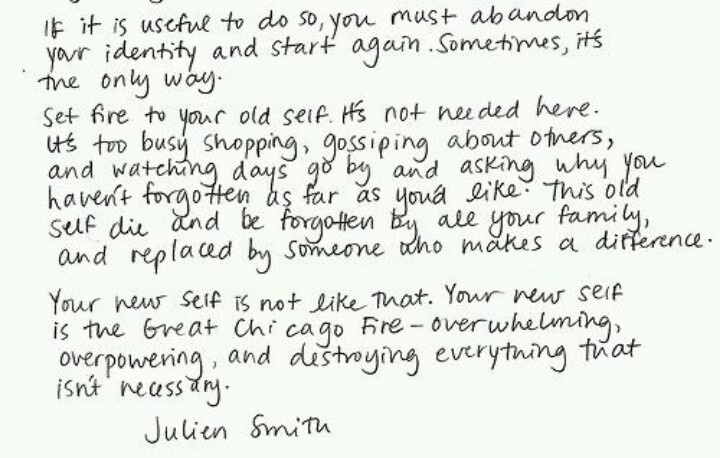 If it is useful to do so, you must abandon
your identity and start again. Sometimes, it's
the only way.
Set fire to your old self. It's not needed here.
It's too busy shopping, gossiping about others,
and watching days go by and asking why you
haven't forgotten as far as you'd like. This old
self die and be forgotten by all your family,
and replaced by someone who makes a difference.
Your new self is not like that. Your new self
is the Great Chicago Fire - overwhelming,
overpowering, and destroying everything that
isn't necessary.
Julien Smith